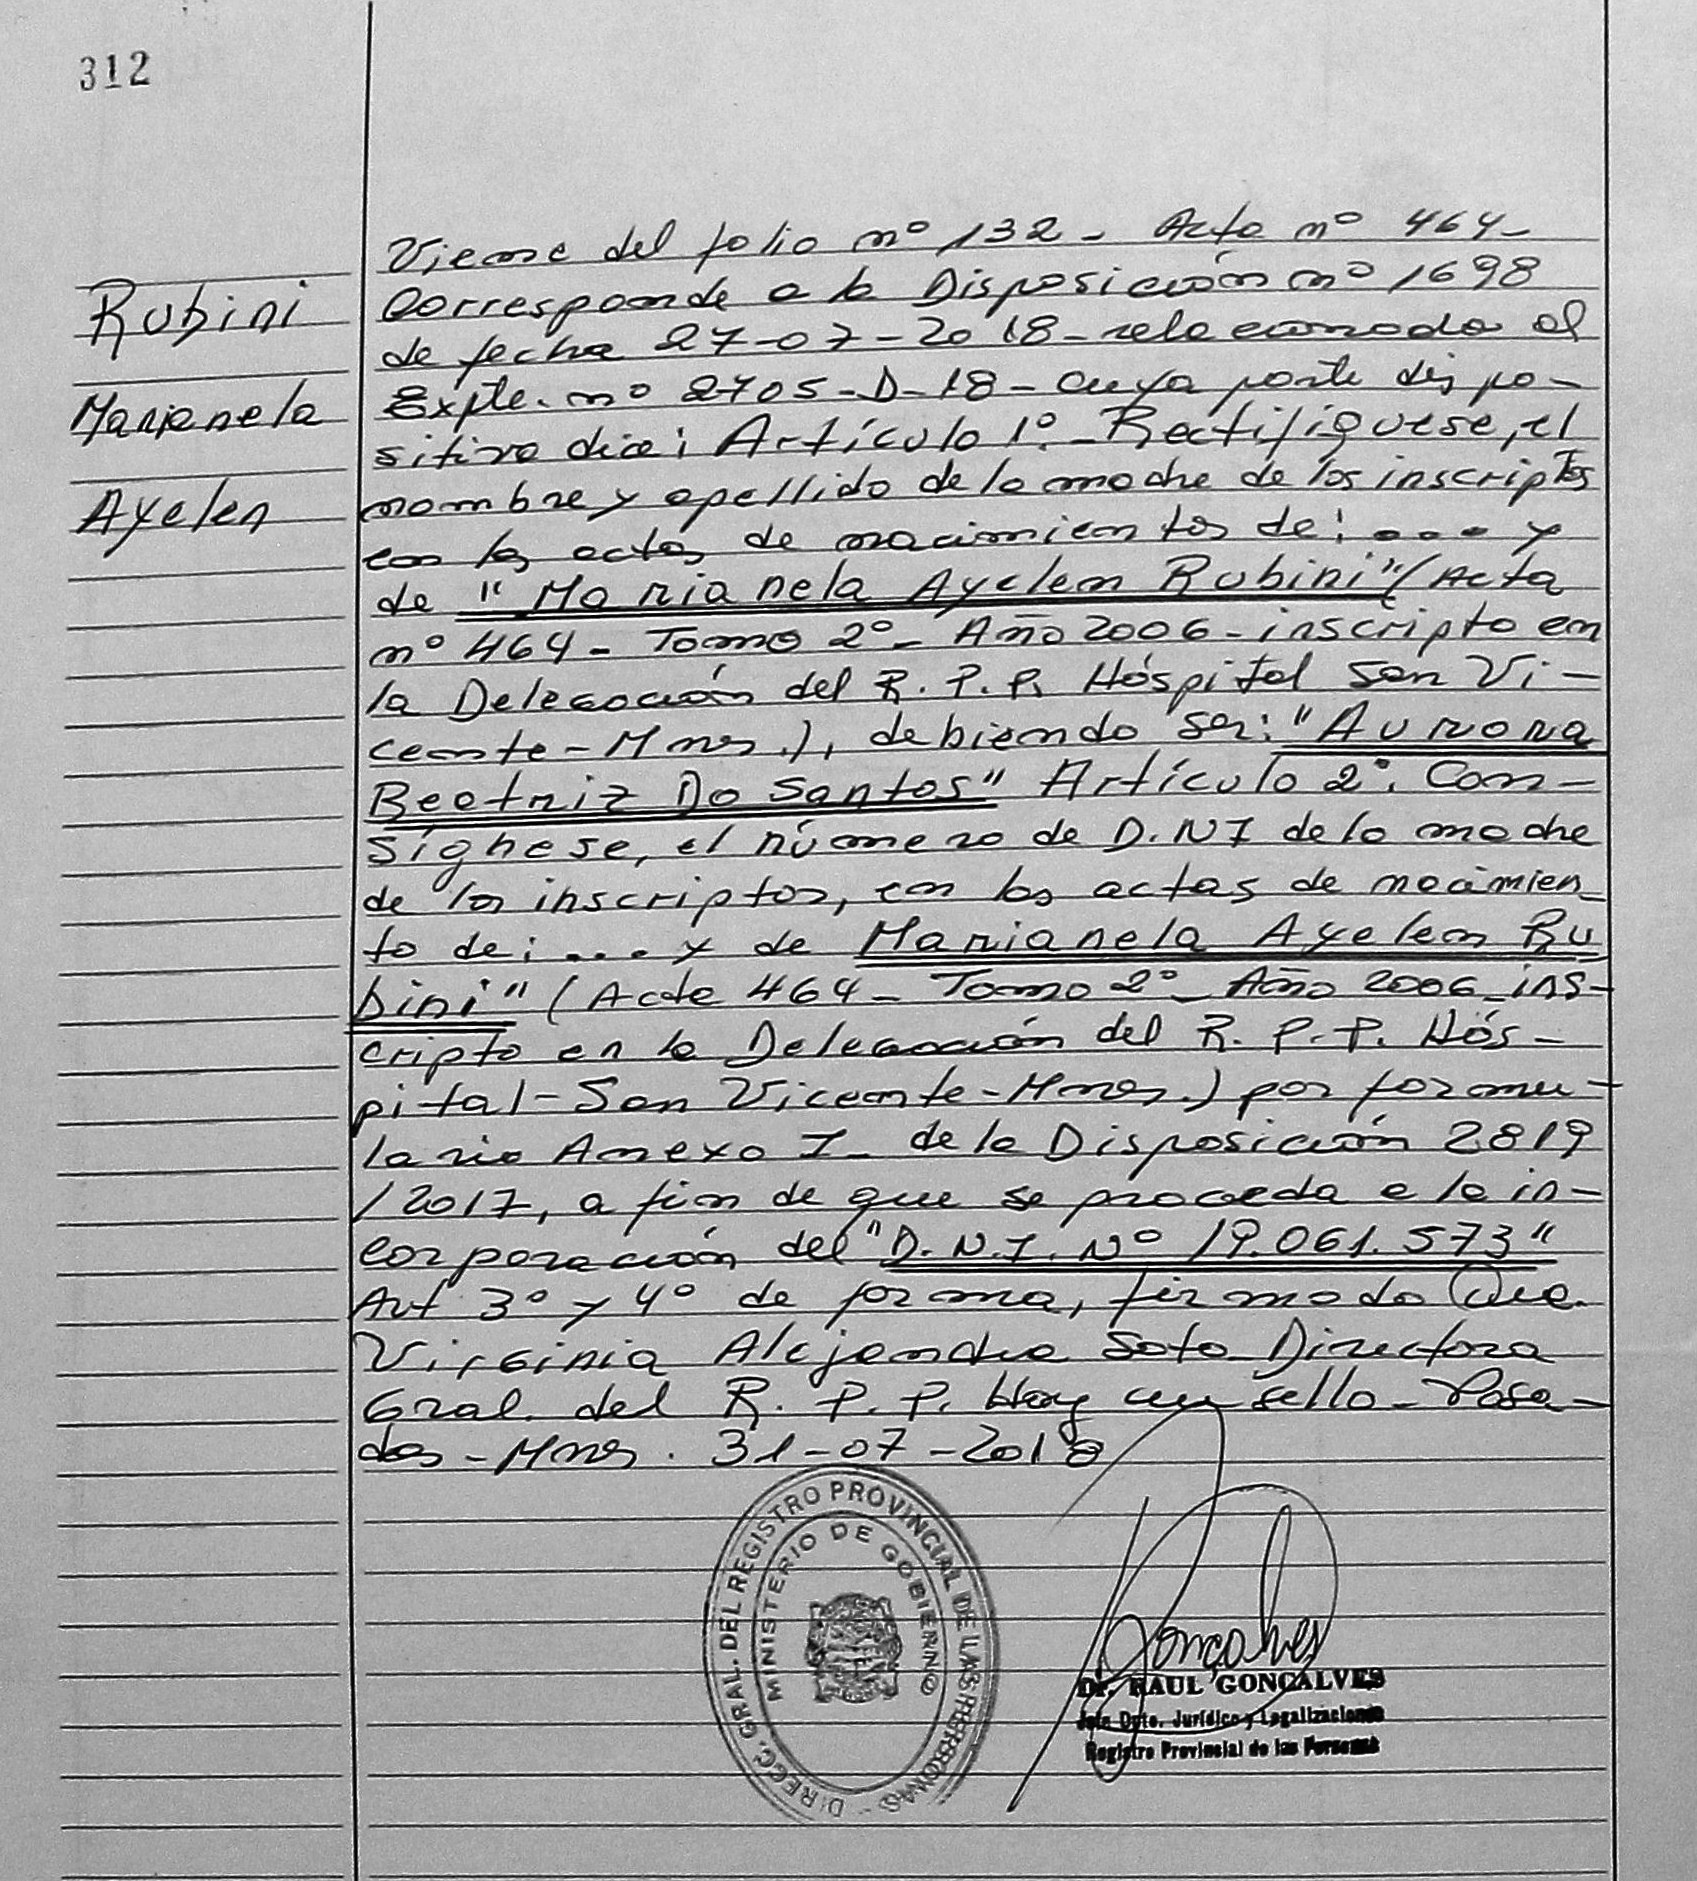 312
Rubini
Marianela
Ayelen
Viene del folio nº 132 - Acta nº 464 -
Corresponde a la Disposición nº 1698
de fecha 27-07-2018 - relacionada al
Expte. nº 2705-D-18 - cuya parte dispo-
sitiva dice: Artículo 1º.- Rectifíquese, el
nombre y apellido de la madre de los inscriptos
en las actas de nacimientos de: .... y
de "Marianela Ayelen Rubini" (Acta
nº 464 - Tomo 2º - Año 2006 - inscripto en
la Delegación del R.P.P. Hóspital San Vi-
cente - Mnes.), debiendo ser: "Aurora
Beatriz Do Santos" Artículo 2º. Con-
sígnese, el número de D.NI de la madre
de los inscriptos, en las actas de nacimien-
to de: .... y de Marianela Ayelen Ru
bini" (Acta 464 - Tomo 2º - Año 2006 - ins-
cripto en la Delegación del R.P.P. Hós-
pital - San Vicente - Mnes.) por formu-
lario Anexo I - de la Disposición 2819
/2017, a fin de que se proceda a la in-
corporación del "D.N.I. Nº 19.061.573"
Art 3º y 4º de forma, firmado
Virginia Alejandra Soto Directora
Gral. del R.P.P. Hay un sello - Posa-
das - Mnes. 31-07-2018
DIRECC. GRAL. DEL REGISTRO PROVINCIAL DE LAS PERSONAS
MINISTERIO DE GOBIERNO
Goncalves
Dr. RAUL GONCALVES
Jefe Dpto. Jurídico y Legalizaciones
Registro Provincial de las Personas